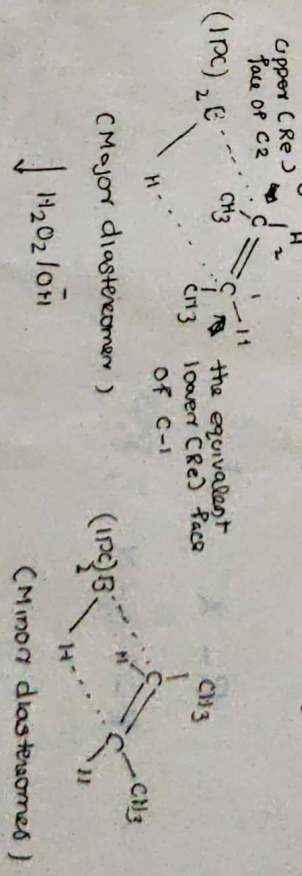 Upper (Re)
face of C2
H
2
(IPC)
2
B
CH3
C
C
1
H
H
CH3
the equivalent
lower (Re) face
of C-1
(Major diastereomer)
H2O2/OH-
CH3
(IPC)2B
H
C
C
CH3
H
H
(Minor diastereomer)